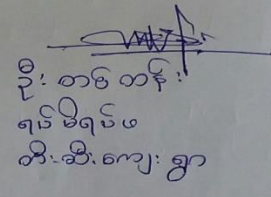 ဦး တစ် တန်း
ရပ်မိရပ်ဖ
တီးဆီးကျေးရွာ